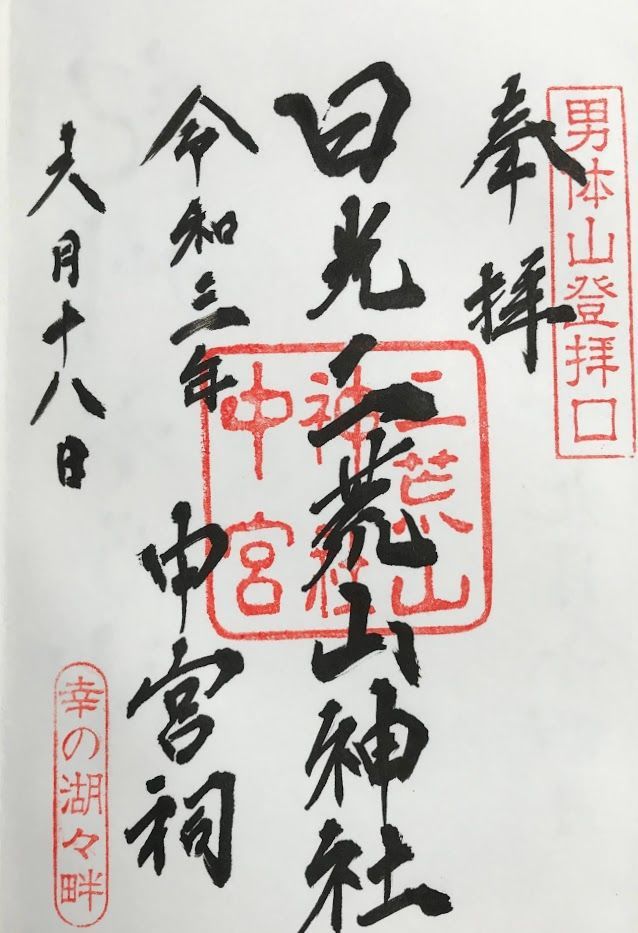 男体山登拝口
奉拝
日光二荒山神社
二荒山
神社
中宮
令和三年
中宮祠
六月十八日
幸の湖々畔